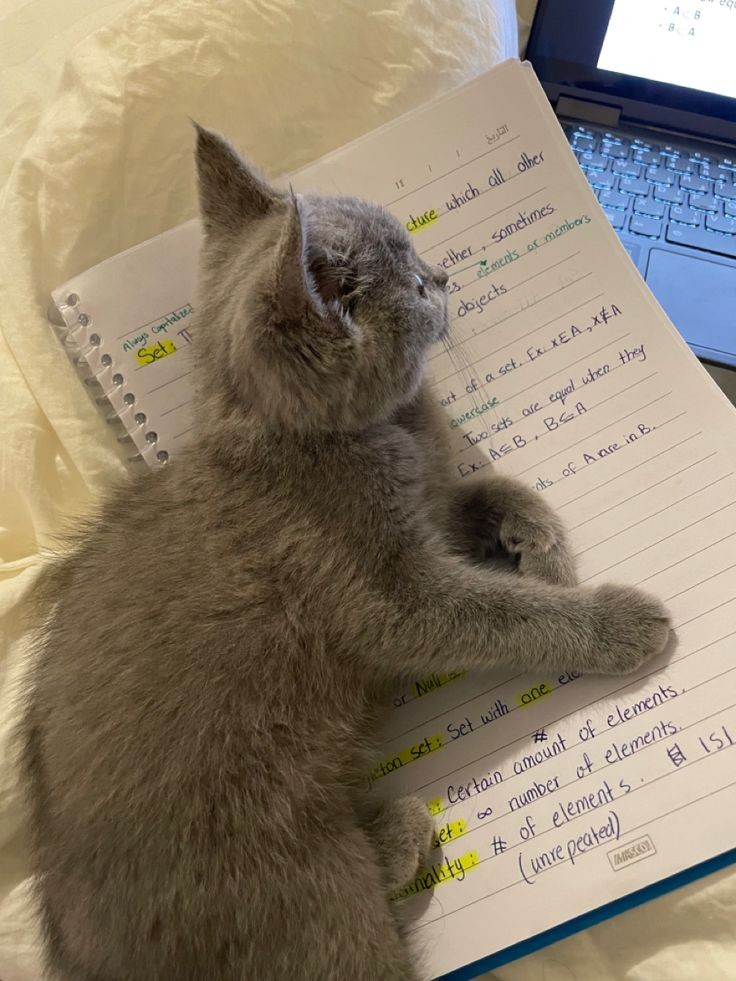 A ⊆ B
B ⊆ A
التاريخ
cture which all other
ether, sometimes
Always Capitalized
es elements or members
Set: objects
art of a set. Ex: x∈A, x∉A
owercase
Two sets are equal when they
Ex: A⊆B, B⊆A
nts of A are in B.
or Null
eton set: Set with one ele
: Certain # amount of elements.
set: ∞ number of elements.
inality: # of elements. |S|
(unrepeated)